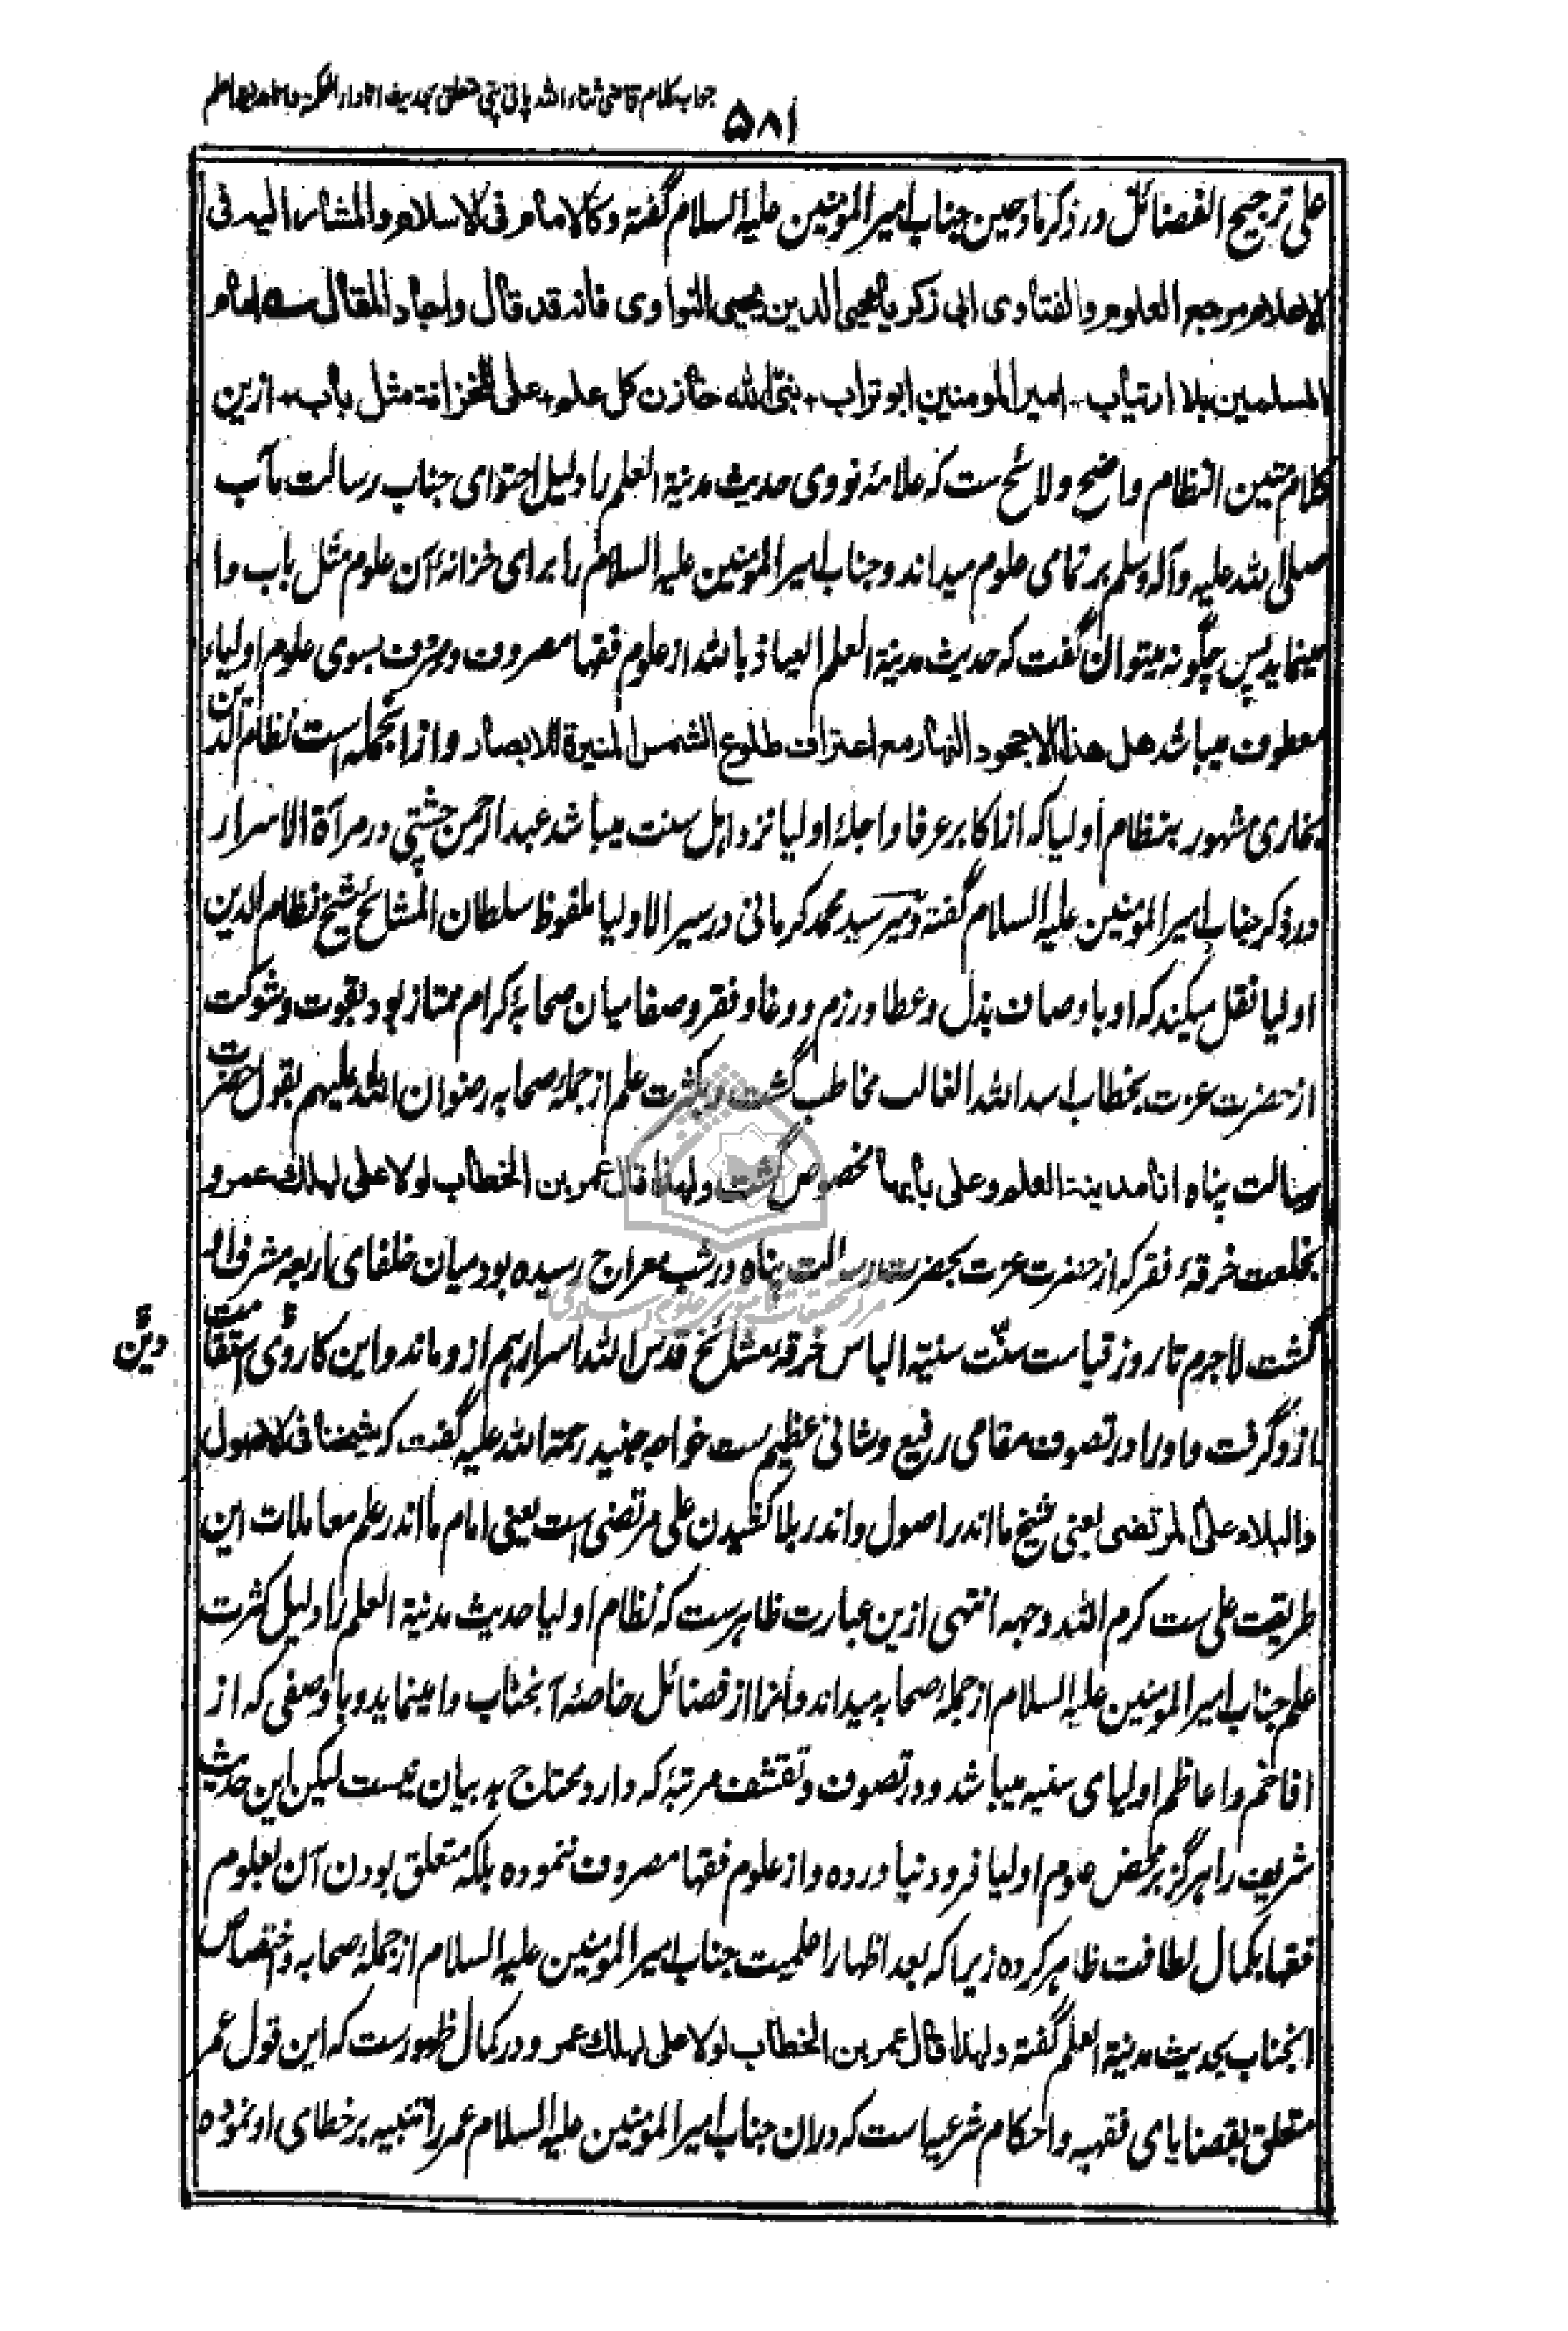 جواب کلام قاضی ثناء الله پانی پتی متعلق بحدیث انا دار الحکمة و انا مدینة العلم
۵۸۱
علی ترجیح الفضائل در ذکر مادحین جناب امیر المؤمنین علیه السلام گفته و کالامام فی الاسلام والمشار الیه فی
الاعلام مرجع العلوم والفتاوی ابی زکریا محیی الدین یحیی النواوی فانه قد قال واجاد المقال امام
المسلمین بلا ارتیاب امیر المومنین ابو تراب نبی الله خازن کل علم علی للخزانة مثل باب ازین
کلام متین النظام واضح و لائح ست که علامۀ نووی حدیث مدینة العلم را دلیل احتوای جناب رسالت مآب
صلی الله علیه وآله وسلم بر تمامی علوم میداند و جناب امیر المؤمنین علیه السلام را برای خزانۀ آن علوم مثل باب وا
مینماید پس چگونه میتوان گفت که حدیث مدینة العلم العیاذ بالله از علوم فقها مصروف و صرف بسوی علوم اولیاء
معطوف میباشد هل هذا الا جحود النهار مع اعتراف طلوع الشمس المنیرة للابصار و از انجمله است نظام الدین
بخاری مشهور بنظام اولیا که از اکابر عرفا و اجلۀ اولیا نزد اهل سنت میباشد عبد الرحمن چشتی در مرآة الاسرار
در ذکر جناب امیر المؤمنین علیه السلام گفته و میر سید محمد کرمانی در سیر الاولیا ملفوظ سلطان المشائخ شیخ نظام الدین
اولیا نقل میکند که او باوصاف بذل و عطا و رزم و وغا و فقر و صفا میان صحابۀ کرام ممتاز بود بقوت و شوکت
از حضرت عزت بخطاب اسد الله الغالب مخاطب گشت و بکثرت علم از جملۀ صحابه رضوان الله علیهم بقول حضرت
رسالت پناه انا مدینة العلم و علی بابها مخصوص گشت و لهذا قال عمر بن الخطاب لولا علی لهلك عمر و
بخلعت خرقۀ فقر که از حضرت عزت بحضرت رسالت پناه در شب معراج رسیده بود میان خلفای اربعه مشرف او
گشت لاجرم تا روز قیامت سنّت سنیۀ الباس خرقه بمشائخ قدس الله اسرارهم ازو ماند و این کار روی استقامت
دین
ازو گرفت و او را در تصوف مقامی رفیع و شانی عظیم ست خواجه جنید رحمة الله علیه گفت که شیخنا فی الاصول
والبلاء علی المرتضی یعنی شیخ ما اندر اصول و اندر بلا کشیدن علی مرتضی است یعنی امام ما اندر علم معاملات این
طریقت علی ست کرم الله وجهه انتهی ازین عبارت ظاهر ست که نظام اولیا حدیث مدینة العلم را دلیل کثرت
علم جناب امیر المومنین علیه السلام از جملۀ صحابه میداند و انرا از فضائل خاصۀ آنجناب وا مینماید و با وصفی که از
افاخم و اعاظم اولیای سنیه میباشد و در تصوف و تقشف مرتبۀ که دارد محتاج به بیان نیست لیکن این حدیث
شریف را هرگز بر محض علوم اولیا فرود نیاورده و از علوم فقها مصروف ننموده بلکه متعلق بودن آن بعلوم
فقها بکمال لطافت ظاهر کرده زیرا که بعد اظهار اعلمیت جناب امیر المومنین علیه السلام از جملۀ صحابه و اختصاص
انجناب بحدیث مدینة العلم گفته و لهذا قال عمر بن الخطاب لولا علی لهلك عمر و در کمال ظهور ست که این قول عمر
متعلق بقضایای فقهیه و احکام شرعیه است که دران جناب امیر المؤمنین علیه السلام عمر را تنبیه بر خطای او نموده